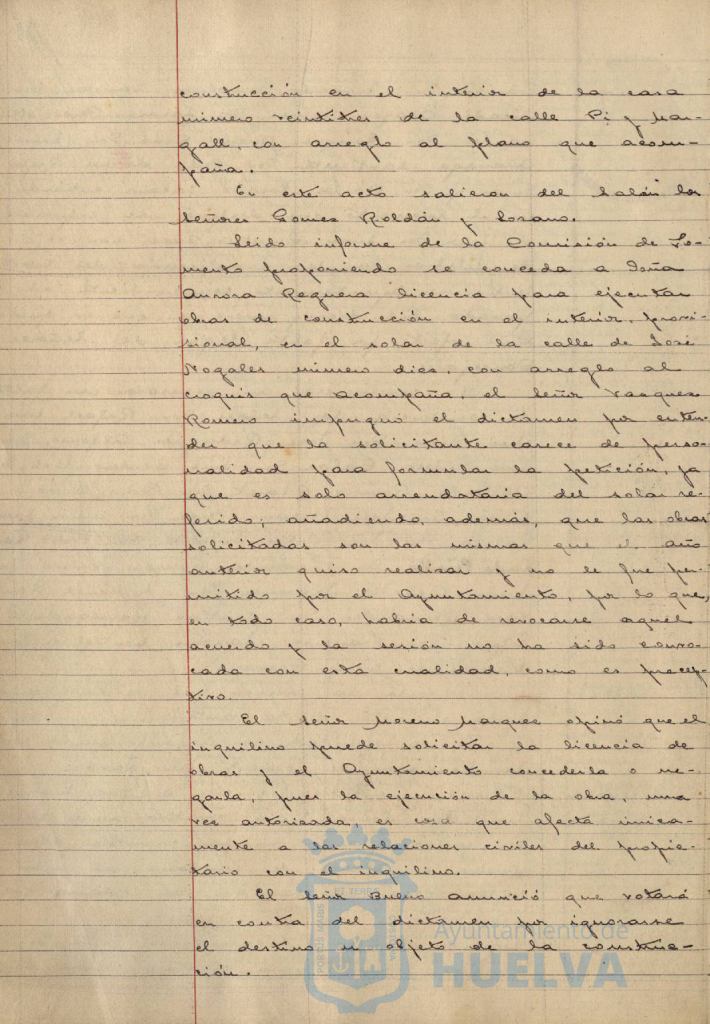 construcción en el interior de la casa
número veintitres de la calle Pi y Mar-
gall, con arreglo al plano que acom-
paña.
En este acto salieron del Salón los
señores Gomez Roldán y Lozano.
Leido informe de la Comisión de Fo-
mento proponiendo se conceda a Doña
Aurora Reguera licencia para ejecutar
obras de construcción en el interior, provi-
sional, en el solar de la calle de José
Nogales número diez, con arreglo al
croquis que acompaña, el Señor Vazquez
Romero impugnó el dictamen por enten-
der que la solicitante carece de perso-
nalidad para formular la petición, ya
que es solo arrendataria del solar re-
ferido; añadiendo, además, que las obras
solicitadas son las mismas que el año
anterior quiso realizar y no le fue per-
mitido por el Ayuntamiento, por lo que,
en todo caso, habria de revocarse aquel
acuerdo y la sesión no ha sido convo-
cada con esta cualidad, como es precep-
tivo.
El Señor Moreno Marquez opinó que el
inquilino puede solicitar la licencia de
obras y el Ayuntamiento concederla o ne-
garla, pues la ejecución de la obra, una
vez autorizada, es cosa que afecta única-
mente a las relaciones civiles del propie-
tario con el inquilino.
El Señor Bueno anunció que votará
en contra del dictamen por ignorarse
el destino u objeto de la construc-
ción.
Ayuntamiento de
HUELVA